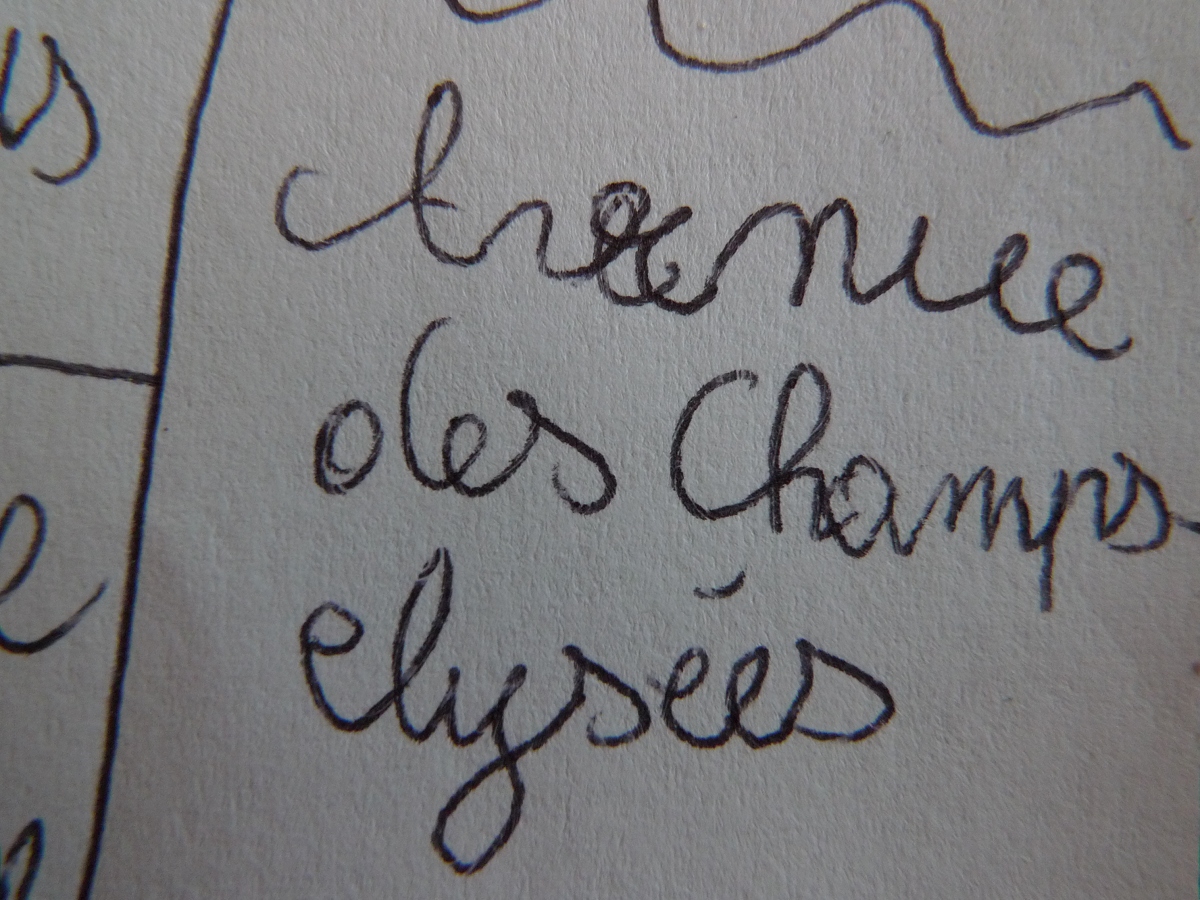 Avenue
des Champs-
elysées